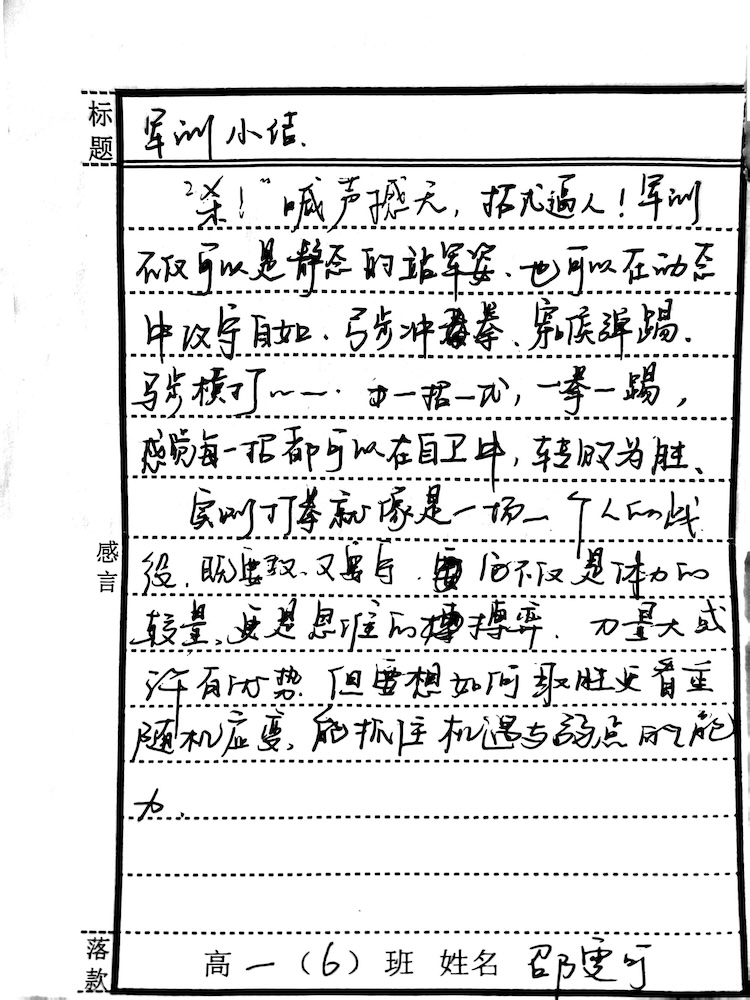 标题
军训小结.
“杀!”喊声撼天,招式逼人!军训
不仅可以是静态的站军姿、也可以在动态
中攻守自如.弓步冲拳、穿喉弹踢.
马步横打…….一招一式,一拳一踢,
感觉每一招都可以在自卫中,转败为胜、
实则打拳就像是一场一个人的战
役,既要攻,又要守.它不仅是体力的
较量,更是思维的搏弈.力量大或
许有优势.但要想如何取胜更看重
随机应变、能抓住机遇与弱点的能
力.
感言
落款
高一(6)班 姓名 邵雯可